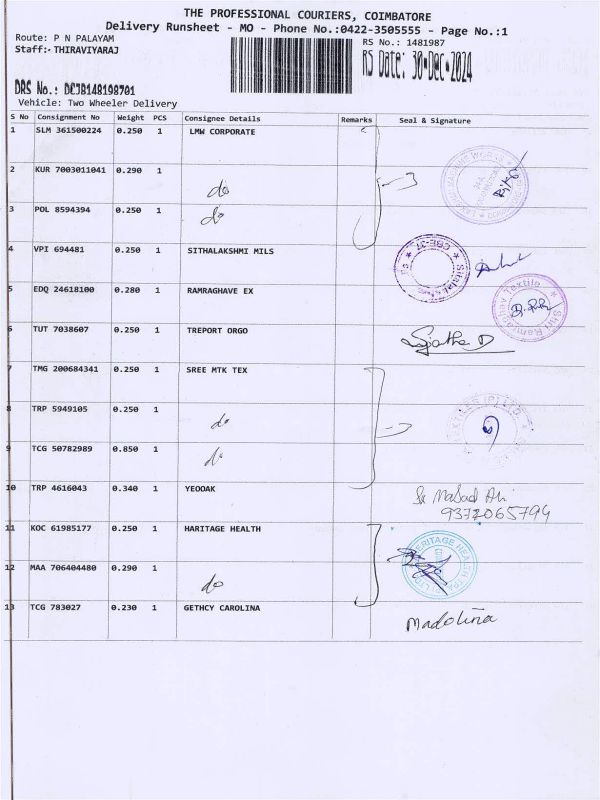 THE PROFESSIONAL COURIERS, COIMBATORE
Delivery Runsheet - MO - Phone No.:0422-3505555 - Page No.:1
Route: P N PALAYAM
Staff:- THIRAVIYARAJ
RS No.: 1481987
RS Date: 30-Dec-2024
DRS No.: DCJB148198701
Vehicle: Two Wheeler Delivery
S No Consignment No Weight PCS Consignee Details Remarks Seal & Signature
1 SLM 361500224 0.250 1 LMW CORPORATE
2 KUR 7003011041 0.290 1 do
3 POL 8594394 0.250 1 do
4 VPI 694481 0.250 1 SITHALAKSHMI MILS
5 EDQ 24618100 0.280 1 RAMRAGHAVE EX
6 TUT 7038607 0.250 1 TREPORT ORGO
Sujatha D
7 TMG 200684341 0.250 1 SREE MTK TEX
8 TRP 5949105 0.250 1 do
9 TCG 50782989 0.850 1 do
10 TRP 4616043 0.340 1 YEOOAK
9372065794
11 KOC 61985177 0.250 1 HARITAGE HEALTH
HERITAGE HEALTH
12 MAA 706404480 0.290 1 do
13 TCG 783027 0.230 1 GETHCY CAROLINA